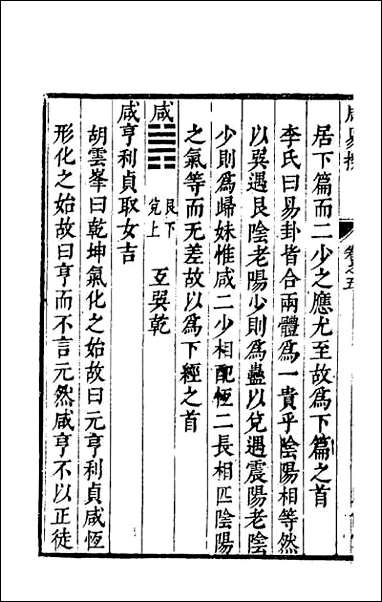 居下篇而二少之應尤至故爲下篇之首
李氏曰易卦皆合兩體爲一貴乎陰陽相等然
以巽遇艮陰老陽少則爲蠱以兌遇震陽老陰
少則爲歸妹惟咸二少相配恆二長相匹陰陽
之氣等而无差故以爲下經之首
咸 艮下 兌上 互巽乾
咸亨利貞取女吉
胡雲峯曰乾坤氣化之始故曰元亨利貞咸恆
形化之始故曰亨而不言元然咸亨不以正徒